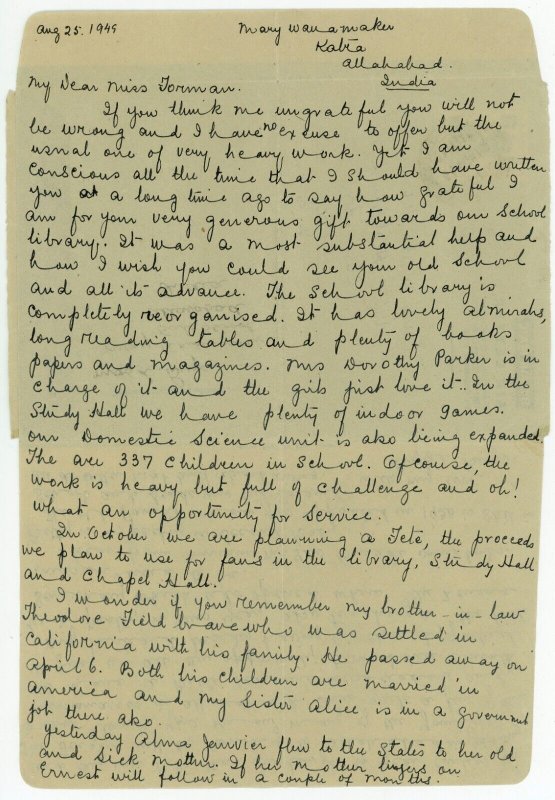 Aug 25. 1949
Mary Wanamaker
Katra
Allahabad.
India
My Dear Miss Forman.
If you think me ungrateful you will not
be wrong and I have no excuse to offer but the
usual one of very heavy work. Yet I am
conscious all the time that I should have written
you a long time ago to say how grateful I
am for your very generous gift towards our School
library. It was a most substantial help and
how I wish you could see your old School
and all its advance. The School library is
completely reorganised. It has lovely almirahs,
long reading tables and plenty of books
papers and magazines. Mrs Dorothy Parker is in
charge of it and the girls just love it.. In the
Study Hall we have plenty of indoor games.
Our Domestic Science unit is also being expanded.
The are 337 children in School. Ofcourse, the
work is heavy but full of challenge and oh!
what an opportunity for service.
In October we are planning a Fete, the proceeds
we plan to use for fans in the library, Study Hall
and Chapel Hall.
I wonder if you remember my brother-in-law
Theodore Fieldbrave who was settled in
California with his family. He passed away on
April 6. Both his children are married in
America and my Sister Alice is in a Government
job there also.
Yesterday Alma Janvier flew to the States to her old
and sick mother. If her mother lingers on
Ernest will follow in a couple of months.